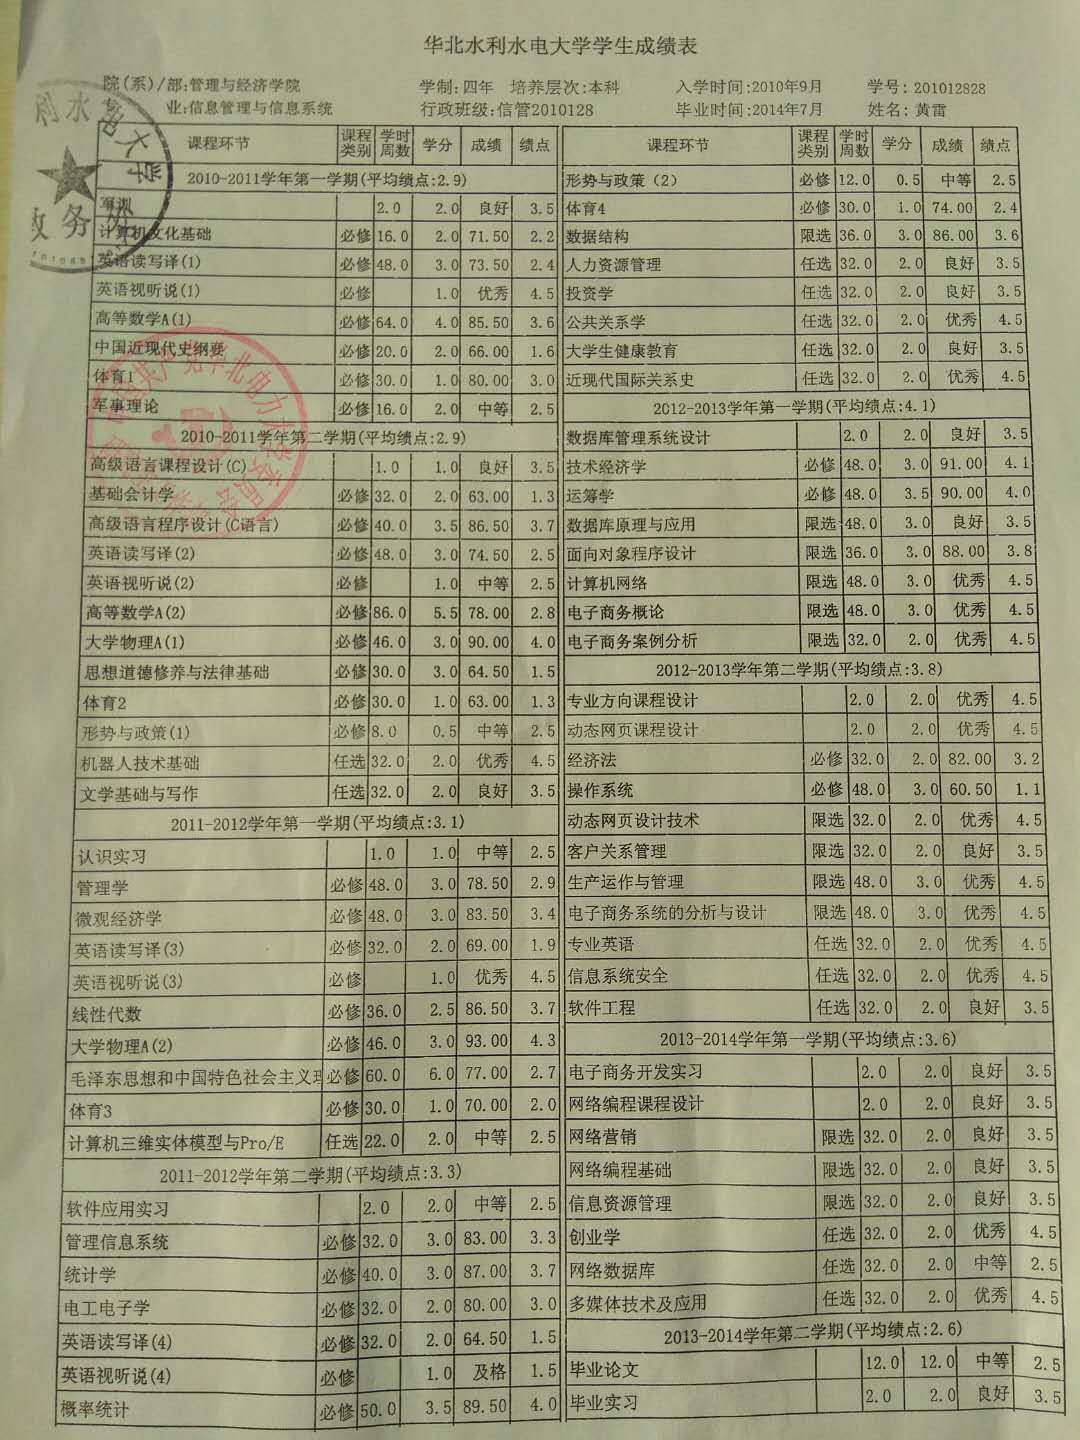 华北水利水电大学学生成绩表
院(系)/部:管理与经济学院 学制:四年 培养层次:本科 入学时间:2010年9月 学号:201012828
专 业:信息管理与信息系统 行政班级:信管2010128 毕业时间:2014年7月 姓名:黄雷
课程环节 课程类别 学时周数 学分 成绩 绩点
2010-2011学年第一学期(平均绩点:2.9)
军训 2.0 2.0 良好 3.5
计算机文化基础 必修 16.0 2.0 71.50 2.2
英语读写译(1) 必修 48.0 3.0 73.50 2.4
英语视听说(1) 必修 1.0 优秀 4.5
高等数学A(1) 必修 64.0 4.0 85.50 3.6
中国近现代史纲要 必修 20.0 2.0 66.00 1.6
体育1 必修 30.0 1.0 80.00 3.0
军事理论 必修 16.0 2.0 中等 2.5
2010-2011学年第二学期(平均绩点:2.9)
高级语言课程设计(C) 1.0 1.0 良好 3.5
基础会计学 必修 32.0 2.0 63.00 1.3
高级语言程序设计(C语言) 必修 40.0 3.5 86.50 3.7
英语读写译(2) 必修 48.0 3.0 74.50 2.5
英语视听说(2) 必修 1.0 中等 2.5
高等数学A(2) 必修 86.0 5.5 78.00 2.8
大学物理A(1) 必修 46.0 3.0 90.00 4.0
思想道德修养与法律基础 必修 30.0 3.0 64.50 1.5
体育2 必修 30.0 1.0 63.00 1.3
形势与政策(1) 必修 8.0 0.5 中等 2.5
机器人技术基础 任选 32.0 2.0 优秀 4.5
文学基础与写作 任选 32.0 2.0 良好 3.5
2011-2012学年第一学期(平均绩点:3.1)
认识实习 1.0 1.0 中等 2.5
管理学 必修 48.0 3.0 78.50 2.9
微观经济学 必修 48.0 3.0 83.50 3.4
英语读写译(3) 必修 32.0 2.0 69.00 1.9
英语视听说(3) 必修 1.0 优秀 4.5
线性代数 必修 36.0 2.5 86.50 3.7
大学物理A(2) 必修 46.0 3.0 93.00 4.3
毛泽东思想和中国特色社会主义理 必修 60.0 6.0 77.00 2.7
体育3 必修 30.0 1.0 70.00 2.0
计算机三维实体模型与Pro/E 任选 22.0 2.0 中等 2.5
2011-2012学年第二学期(平均绩点:3.3)
软件应用实习 2.0 2.0 中等 2.5
管理信息系统 必修 32.0 3.0 83.00 3.3
统计学 必修 40.0 3.0 87.00 3.7
电工电子学 必修 32.0 2.0 80.00 3.0
英语读写译(4) 必修 32.0 2.0 64.50 1.5
英语视听说(4) 必修 1.0 及格 1.5
概率统计 必修 50.0 3.5 89.50 4.0
课程环节 课程类别 学时周数 学分 成绩 绩点
形势与政策(2) 必修 12.0 0.5 中等 2.5
体育4 必修 30.0 1.0 74.00 2.4
数据结构 限选 36.0 3.0 86.00 3.6
人力资源管理 任选 32.0 2.0 良好 3.5
投资学 任选 32.0 2.0 良好 3.5
公共关系学 任选 32.0 2.0 优秀 4.5
大学生健康教育 任选 32.0 2.0 良好 3.5
近现代国际关系史 任选 32.0 2.0 优秀 4.5
2012-2013学年第一学期(平均绩点:4.1)
数据库管理系统设计 2.0 2.0 良好 3.5
技术经济学 必修 48.0 3.0 91.00 4.1
运筹学 必修 48.0 3.5 90.00 4.0
数据库原理与应用 限选 48.0 3.0 良好 3.5
面向对象程序设计 限选 36.0 3.0 88.00 3.8
计算机网络 限选 48.0 3.0 优秀 4.5
电子商务概论 限选 48.0 3.0 优秀 4.5
电子商务案例分析 限选 32.0 2.0 优秀 4.5
2012-2013学年第二学期(平均绩点:3.8)
专业方向课程设计 2.0 2.0 优秀 4.5
动态网页课程设计 2.0 2.0 优秀 4.5
经济法 必修 32.0 2.0 82.00 3.2
操作系统 必修 48.0 3.0 60.50 1.1
动态网页设计技术 限选 32.0 2.0 优秀 4.5
客户关系管理 限选 32.0 2.0 良好 3.5
生产运作与管理 限选 48.0 3.0 优秀 4.5
电子商务系统的分析与设计 限选 48.0 3.0 优秀 4.5
专业英语 任选 32.0 2.0 优秀 4.5
信息系统安全 任选 32.0 2.0 优秀 4.5
软件工程 任选 32.0 2.0 良好 3.5
2013-2014学年第一学期(平均绩点:3.6)
电子商务开发实习 2.0 2.0 良好 3.5
网络编程课程设计 2.0 2.0 良好 3.5
网络营销 限选 32.0 2.0 良好 3.5
网络编程基础 限选 32.0 2.0 良好 3.5
信息资源管理 限选 32.0 2.0 良好 3.5
创业学 任选 32.0 2.0 优秀 4.5
网络数据库 任选 32.0 2.0 中等 2.5
多媒体技术及应用 任选 32.0 2.0 优秀 4.5
2013-2014学年第二学期(平均绩点:2.6)
毕业论文 12.0 12.0 中等 2.5
毕业实习 2.0 2.0 良好 3.5